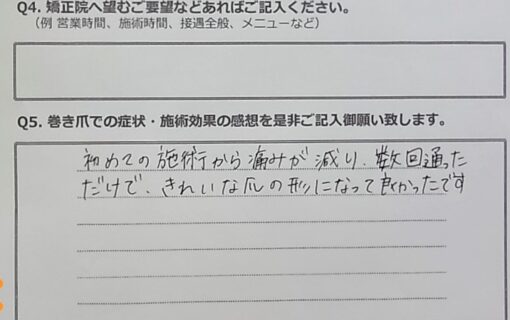 Q4. 矯正院へ望むご要望などあればご記入ください。
（例 営業時間、施術時間、接遇全般、メニューなど）
Q5. 巻き爪での症状・施術効果の感想を是非ご記入御願い致します。
初めての施術から痛みが減り、数回通った
だけで、きれいな爪の形になって良かったです